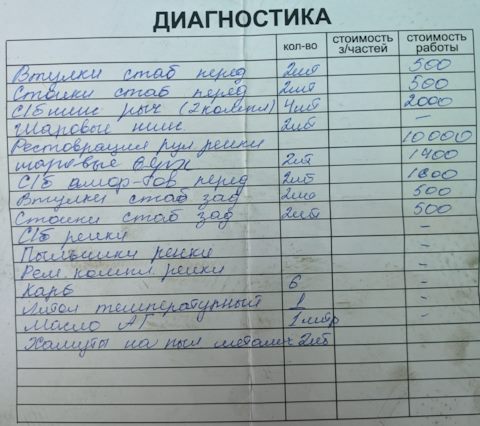 ДИАГНОСТИКА
кол-во стоимость з/частей стоимость работы
Втулки стаб перед 2шт 500
Стойки стаб перед 2шт 500
С/б нижн рыч (2 компл) 4шт 2000
Шаровые нижн. 2шт -
Реставрация рул рейки 10000
шаровые 2шт 1400
С/б аморт-ов перед 2шт 1800
Втулки стаб зад 2шт 500
Стойки стаб зад 2шт 500
С/б рейки -
Пыльники рейки -
Рем. компл рейки -
Карб 6 -
Литол температурный 1 -
Масло АГ 1 литр -
Хомуты на пыл металич 2шт